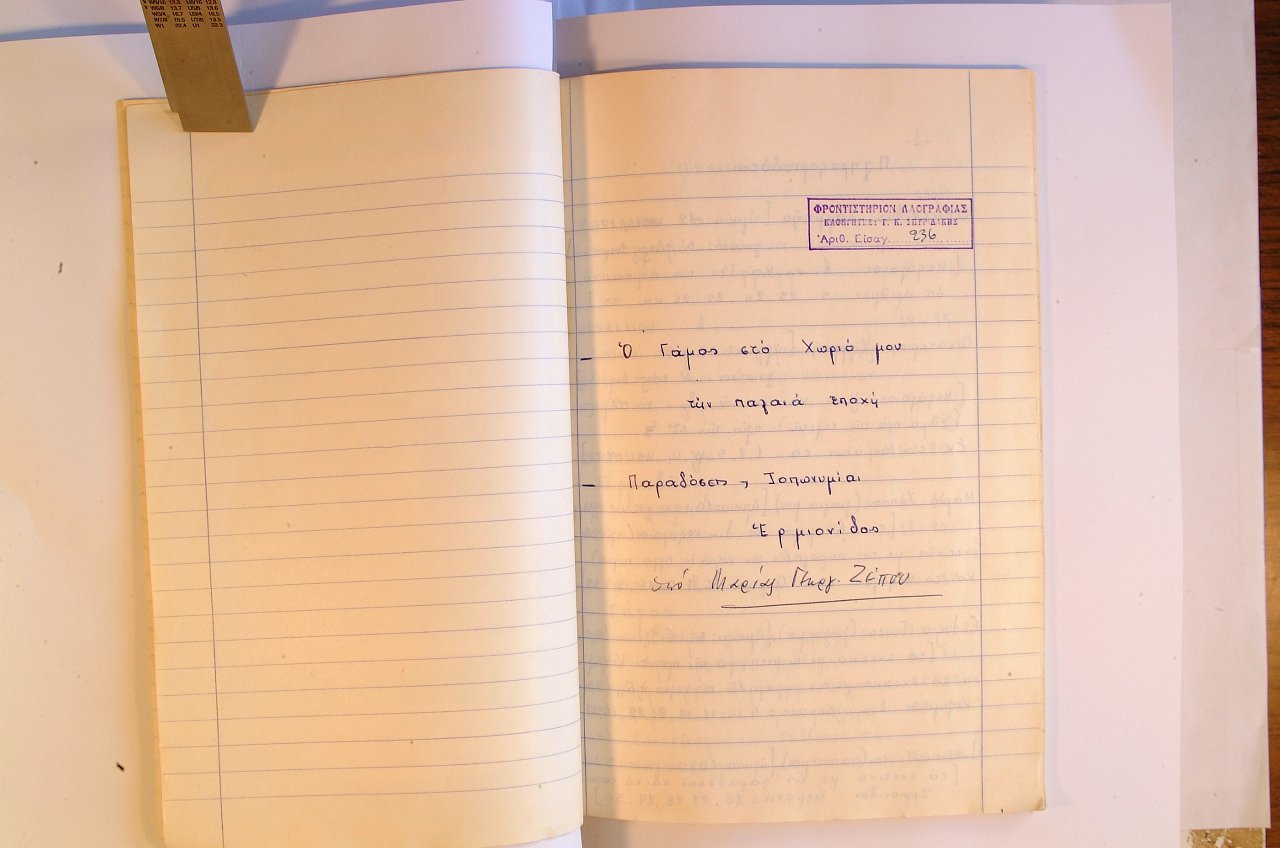 ΦΡΟΝΤΙΣΤΗΡΙΟΝ ΛΑΟΓΡΑΦΙΑΣ
ΚΑΘΗΓΗΤΗΣ: Γ. Κ. ΣΠΥΡΙΔΑΚΗΣ
Ἀριθ. Εἰσαγ. 236
- Ὁ Γάμος στό Χωριό μου
τήν παλαιά ἐποχή
- Παραδόσεις, Τοπωνυμίαι
Ἑρμιονίδος
ὑπό Μαρίας Γεωργ. Ζέππου